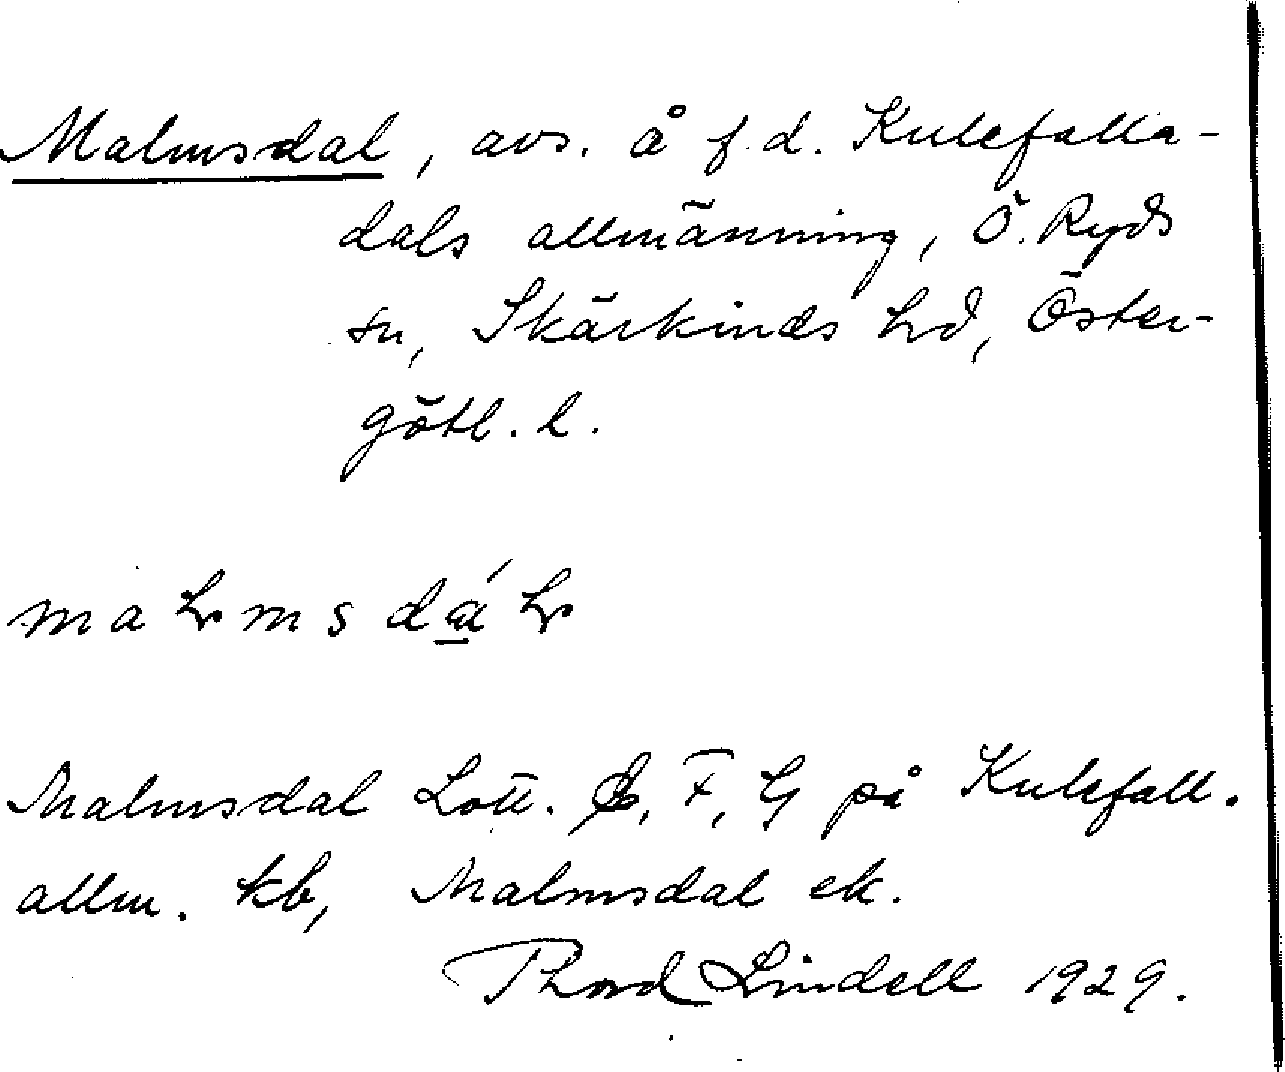 Malmsdal, avs. å f.d. Kulefalla-
dals allmänning, Ö. Ryds
sn, Skärkinds hd, Öster-
götl. l.
malmsdál
Malmsdal Lott. F, G på Kulefall.
allm. kb, Malmsdal ek.
Thord Lindell 1929.